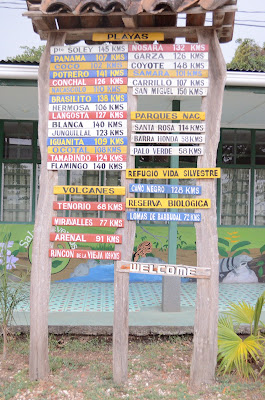 PLAYAS
Pto SOLEY 145 KMS
PANAMA 107 KMS
POTRERO 141 KMS
CONCHAL 126 KMS
BRASILITO 138 KMS
HERMOSA 106 KMS
LANGOSTA 127 KMS
BLANCA 140 KMS
JUNQUILLAL 123 KMS
IGUANITA 109 KMS
OCOTAL 109 KMS
TAMARINDO 124 KMS
FLAMINGO 140 KMS
VOLCANES
TENORIO 68 KMS
MIRAVALLES 77 KMS
ARENAL 91 KMS
RINCON DE LA VIEJA 109 KMS
NOSARA 132 KMS
GARZA 126 KMS
COYOTE 148 KMS
SAMARA 101 KMS
CARRILLO 107 KMS
SAN MIGUEL 160 KMS
PARQUES NAC.
SANTA ROSA 114 KMS
BARRA HONDA 58 KMS
PALO VERDE 58 KMS
REFUGIO VIDA SILVESTRE
CAÑO NEGRO 128 KMS
RESERVA BIOLOGICA
LOMAS DE BARBUDAL 72 KMS
WELCOME